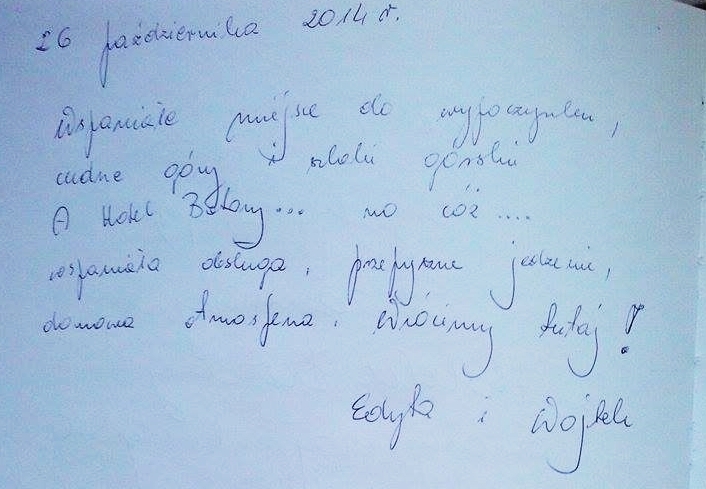 26 października 2014 r.
Wspaniałe miejsce do wypoczynku,
cudne góry i szlaki górskie
A Hotel Batory... no cóż....
wspaniała obsługa, przepyszne jedzenie,
domowa atmosfera. Wrócimy tutaj!
Edyta i Wojtek